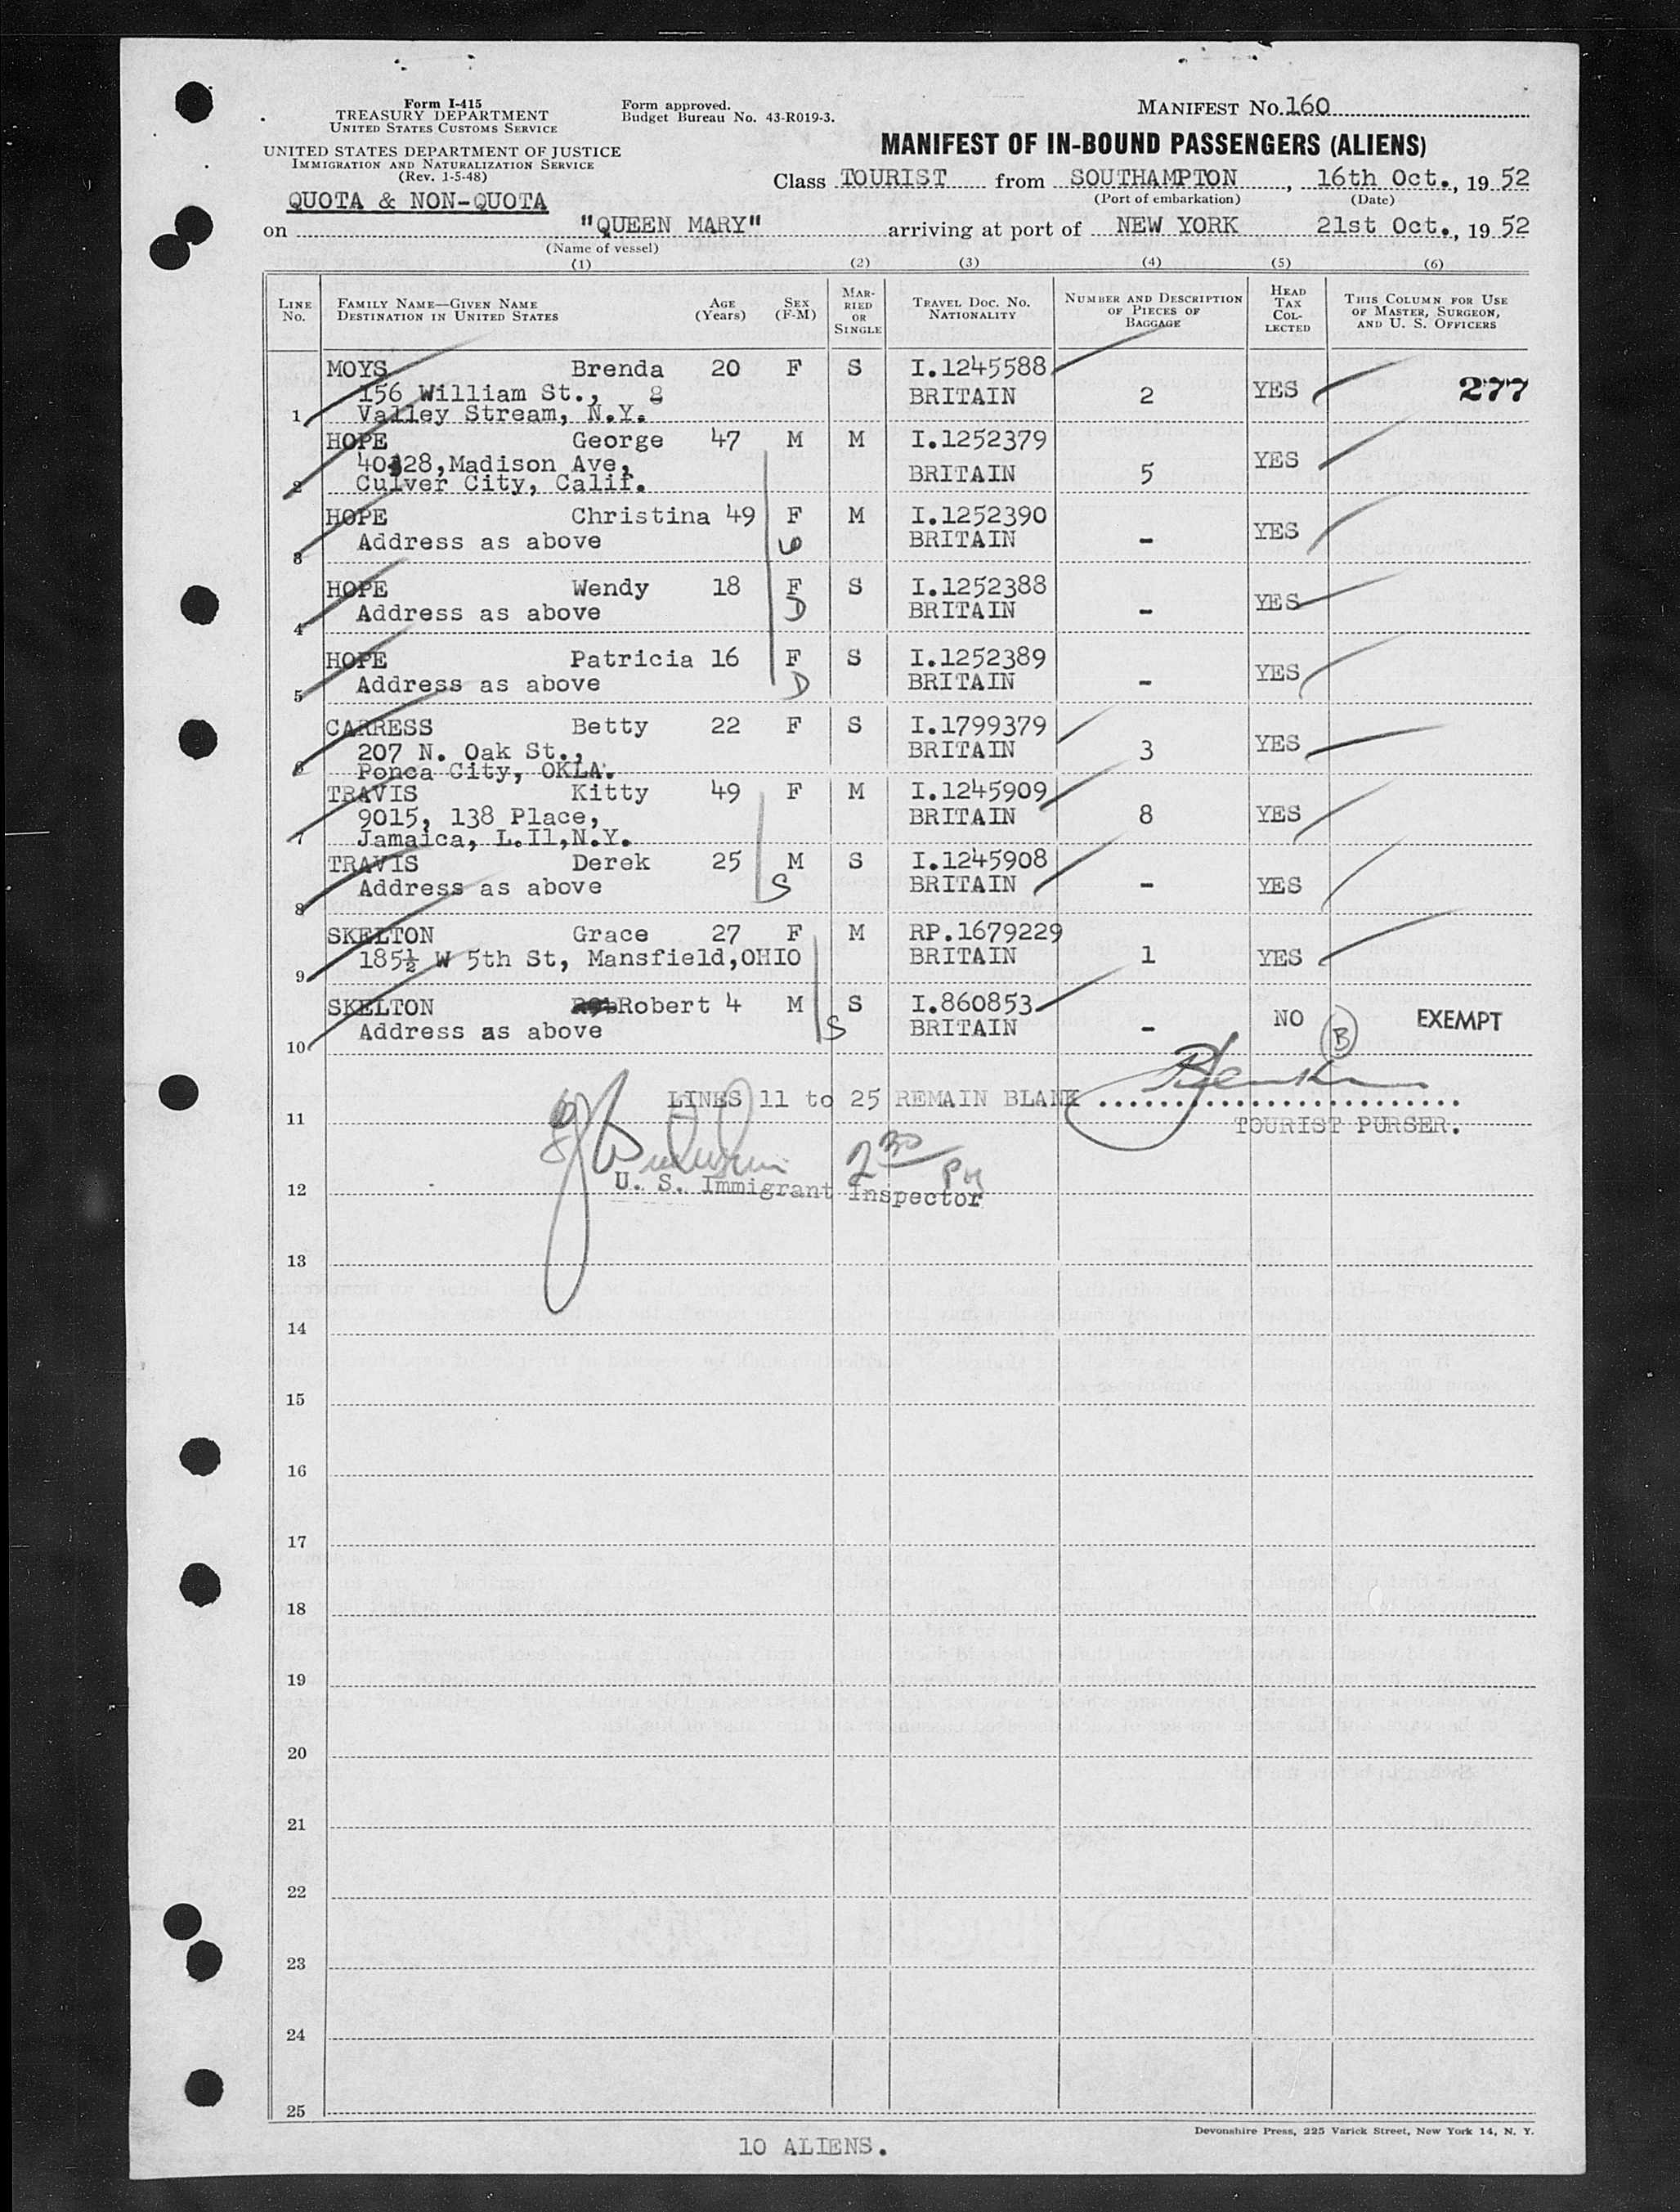 Form I-415
TREASURY DEPARTMENT
UNITED STATES CUSTOMS SERVICE
UNITED STATES DEPARTMENT OF JUSTICE
IMMIGRATION AND NATURALIZATION SERVICE
(Rev. 1-5-48)
Form approved.
Budget Bureau No. 43-R019-3.
MANIFEST No. 160
MANIFEST OF IN-BOUND PASSENGERS (ALIENS)
Class TOURIST from SOUTHAMPTON, 16th Oct., 19 52
(Port of embarkation) (Date)
QUOTA & NON-QUOTA
on "QUEEN MARY" arriving at port of NEW YORK 21st Oct., 19 52
(Name of vessel)
(1) (2) (3) (4) (5) (6)
LINE No. FAMILY NAME—GIVEN NAME DESTINATION IN UNITED STATES AGE (Years) SEX (F-M) MARRIED OR SINGLE TRAVEL DOC. NO. NATIONALITY NUMBER AND DESCRIPTION OF PIECES OF BAGGAGE HEAD TAX COLLECTED THIS COLUMN FOR USE OF MASTER, SURGEON, AND U. S. OFFICERS
MOYS Brenda 20 F S I.1245588
156 William St., 8 BRITAIN 2 YES 277
1 Valley Stream, N.Y.
HOPE George 47 M M I.1252379
40328,Madison Ave, BRITAIN 5 YES
2 Culver City, Calif.
HOPE Christina 49 F M I.1252390
Address as above BRITAIN - YES
3
HOPE Wendy 18 F S I.1252388
Address as above D BRITAIN - YES
4
HOPE Patricia 16 F S I.1252389
Address as above D BRITAIN - YES
5
CARRESS Betty 22 F S I.1799379
207 N. Oak St., BRITAIN 3 YES
6 Ponca City, OKLA.
TRAVIS Kitty 49 F M I.1245909
9015, 138 Place, BRITAIN 8 YES
7 Jamaica, L.Il,N.Y.
TRAVIS Derek 25 M S I.1245908
Address as above S BRITAIN - YES
8
SKELTON Grace 27 F M RP.1679229
185½ W 5th St, Mansfield,OHIO BRITAIN 1 YES
9
SKELTON Robert 4 M S I.860853
Address as above S BRITAIN - NO B EXEMPT
10
LINES 11 to 25 REMAIN BLANK
11 TOURIST PURSER.
2 30 PM
12 U. S. Immigrant Inspector
13
14
15
16
17
18
19
20
21
22
23
24
25
Devonshire Press, 225 Varick Street, New York 14, N. Y.
10 ALIENS.